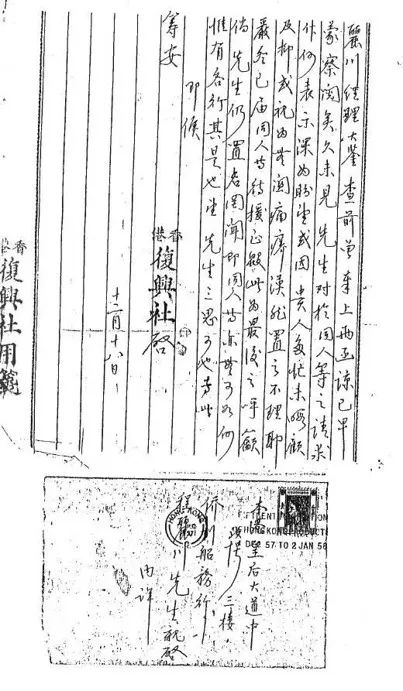 麗川經理大鑒查前曾奉上兩函諒已早
蒙察閱矣久未見先生對於同人等之請求
作何表示深為盼望或因貴人多忙未暇顧
及抑或視為無關痛痒漠然置之不理耶
嚴冬已屆同人等待援正殷此為最後之呼籲
倘先生仍置若罔聞即同人等亦無可如何
惟有各行其是也望先生三思可也專此
即候
籌安
香港復興社啓
十二月十八日
香港復興社用箋
HONG KONG PRODUCTS
DEC 57 TO 2 JAN 58
HONG KONG
本港皇后大道中
三樓
船務行
川先生
內詳